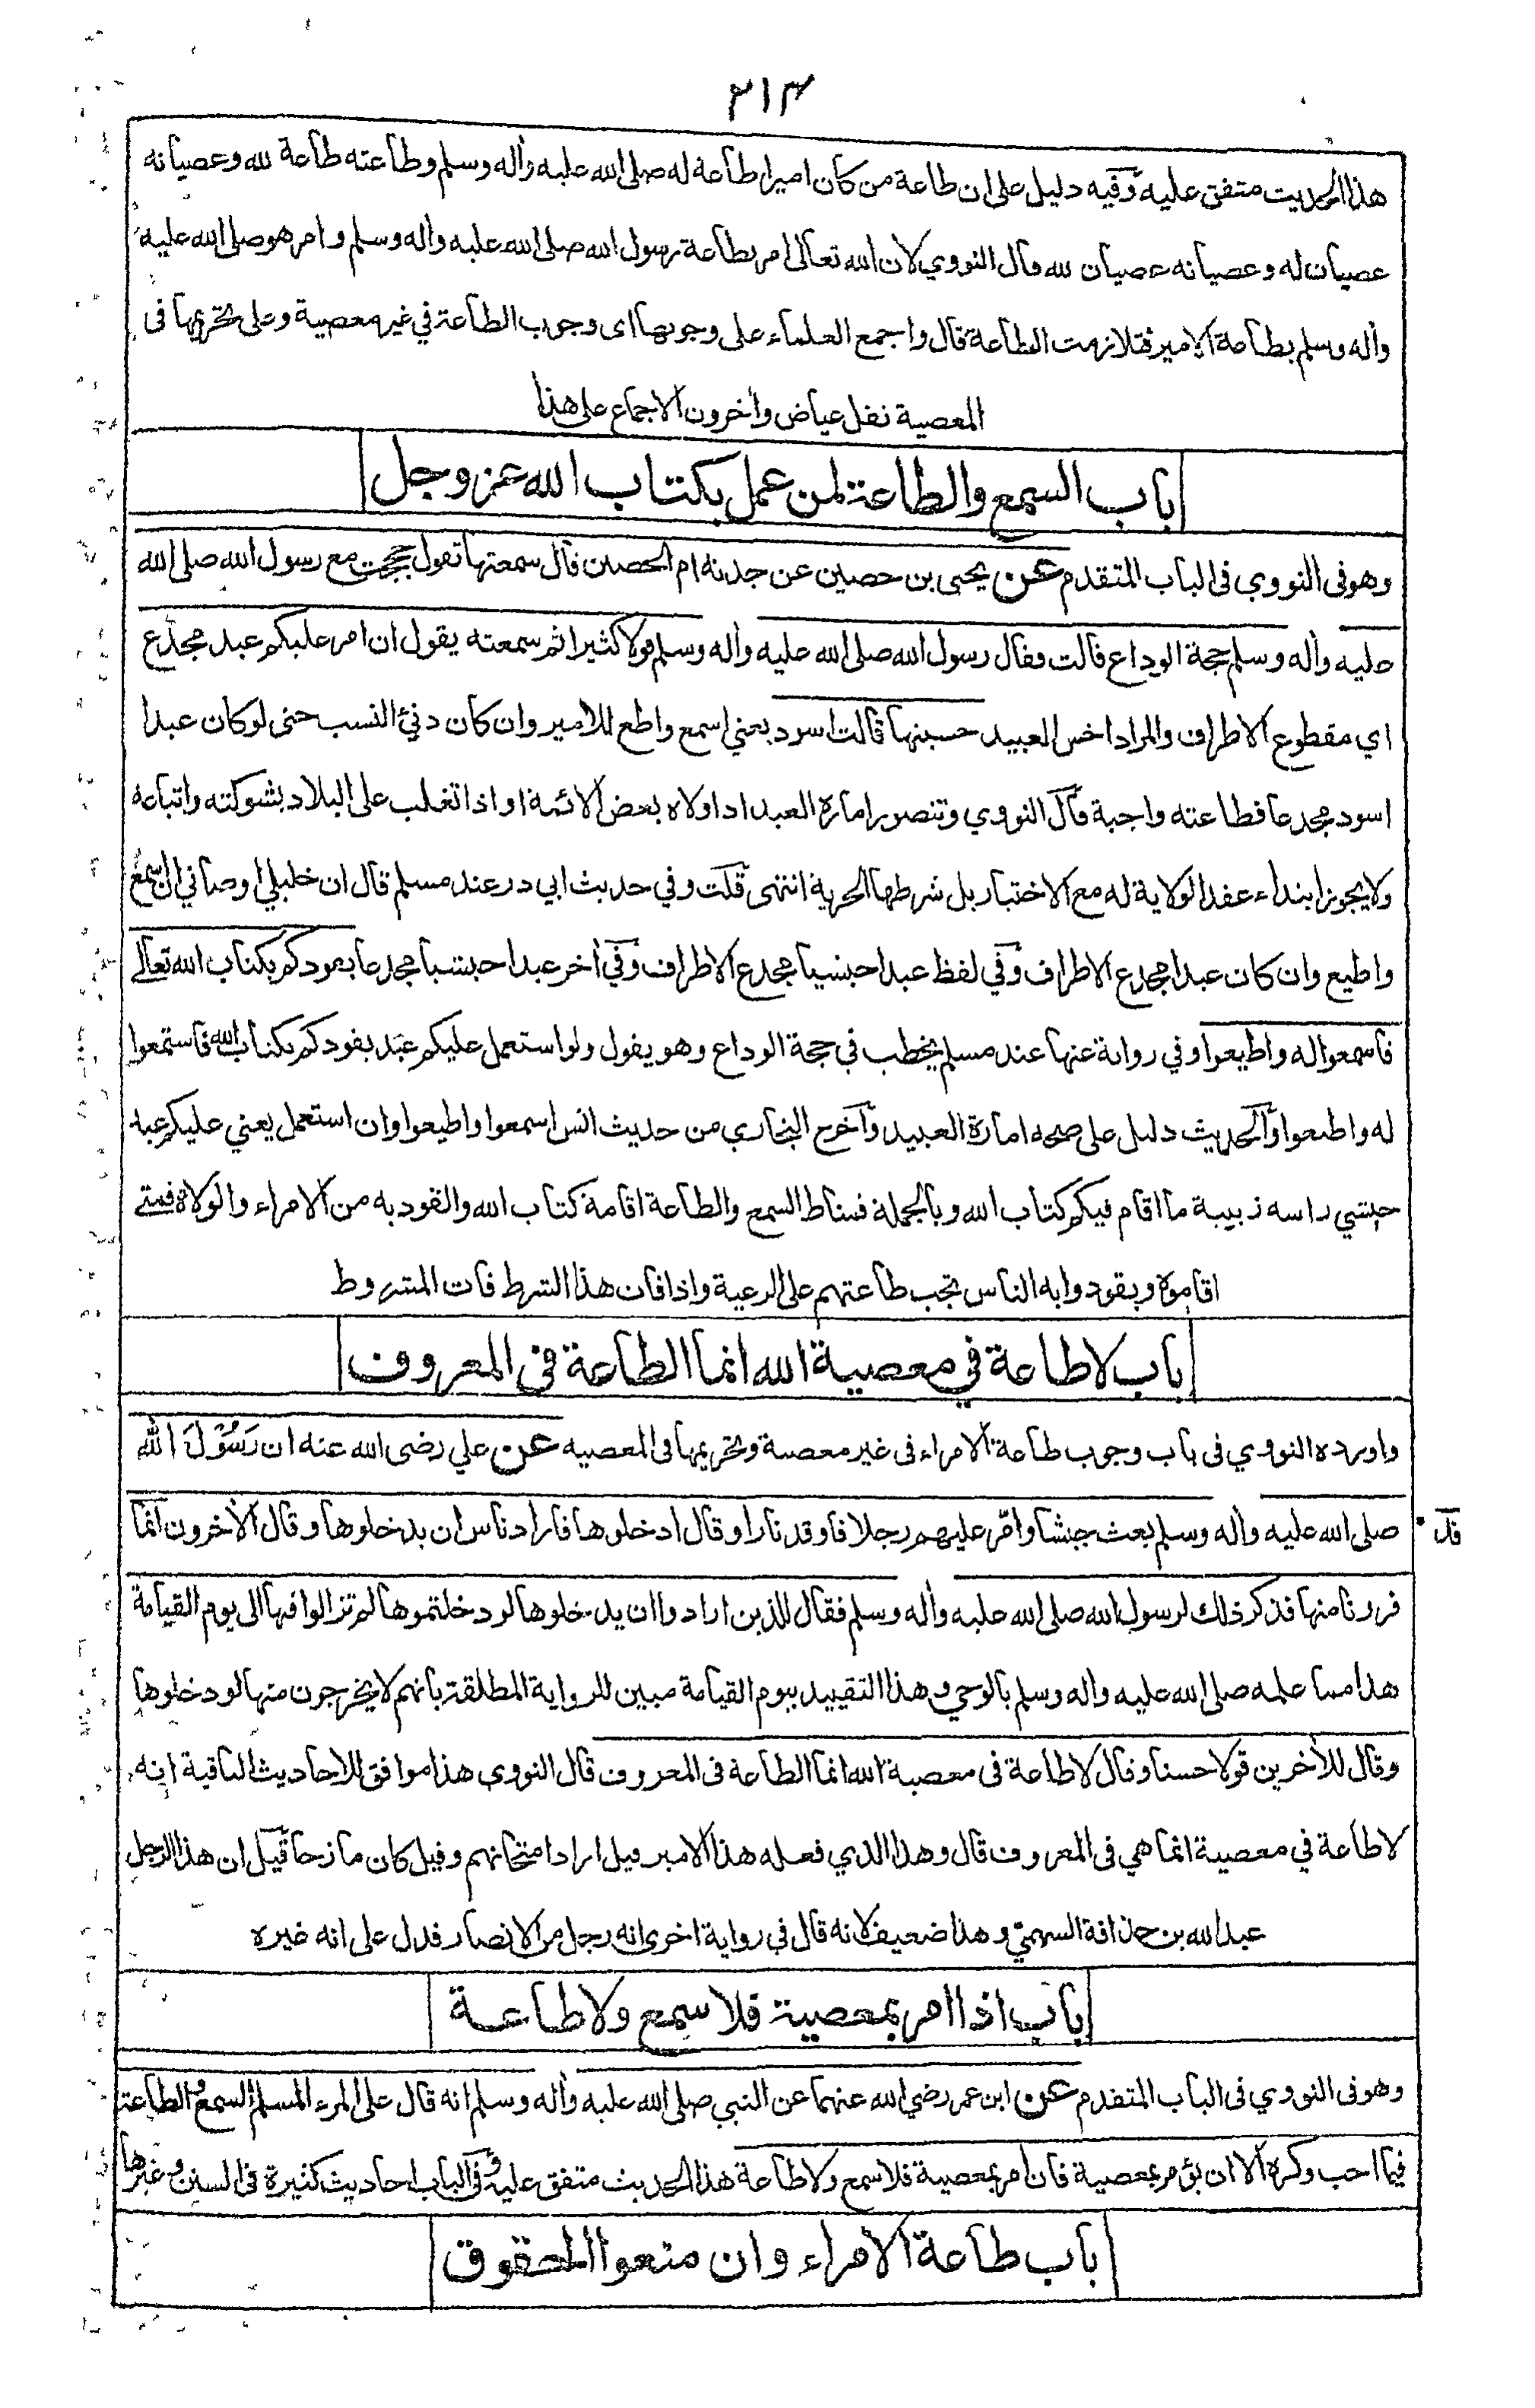 ٢١٣
هذا الحديث متفق عليه وفيه دليل على ان طاعة من كان اميرا طاعة له صلى الله عليه وأله وسلم وطاعته طاعة لله وعصيانه
عصيان له وعصيانه عصيان لله وقال النووي لان الله تعالى امر بطاعة رسول الله صلى الله عليه وأله وسلم وامر هو صلى الله عليه
وأله وسلم بطاعة الامير فتلازمت الطاعة قال واجمع العلماء على وجوبها اى وجوب الطاعة في غير معصية وعلى تحريمها فى
المعصية نقل عياض وأخرون الاجماع على هذا
باب السمع والطاعة لمن عمل بكتاب الله عز وجل
وهو فى النووي فى الباب المتقدم عن يحيى بن حصين عن جدته ام الحصين قال سمعتها تقول حججت مع رسول الله صلى الله
عليه وأله وسلم حجة الوداع قالت وقال رسول الله صلى الله عليه وأله وسلم قولا كثيرا ثم سمعته يقول ان امر عليكم عبد مجدع
اي مقطوع الاطراف والمراد اخس العبيد حسبتها قالت اسود يعني اسمع واطع للامير وان كان دنئ النسب حتى لو كان عبدا
اسود مجدعا فطاعته واجبة قال النووي وتتصور امارة العبد اذا ولاه بعض الائمة او اذا تغلب على البلاد بشوكته واتباعه
ولا يجوز ابتداء عقد الولاية له مع الاختيار بل شرطها الحرية انتهى قلت وفي حديث ابي ذر عند مسلم قال ان خليلي اوصاني ان اسمع
واطيع وان كان عبدا مجدع الاطراف وفي لفظ عبدا حبشيا مجدع الاطراف وفي أخر عبدا حبشيا مجدعا يقودكم بكتاب الله تعالى
فاسمعوا له واطيعوا وفي رواية عنها عند مسلم يخطب في حجة الوداع وهو يقول ولو استعمل عليكم عبد يقودكم بكتاب الله فاستمعوا
له واطيعوا والحديث دليل على صحة امارة العبيد وأخرج البخاري من حديث انس اسمعوا واطيعوا وان استعمل يعني عليكم عبد
حبشي راسه زبيبة ما اقام فيكم كتاب الله وبالجملة فمناط السمع والطاعة اقامة كتاب الله والقود به من الامراء والولاة فمتى
اقاموه ويقودوا به الناس تجب طاعتهم على الرعية واذا فات هذا الشرط فات المشروط
باب لا طاعة في معصية الله انما الطاعة فى المعروف
واورده النووي فى باب وجوب طاعة الامراء فى غير معصية وتحريمها فى المعصيه عن علي رضى الله عنه ان رَسُوْلَ الله
صلى الله عليه وأله وسلم بعث جيشا وامّر عليهم رجلا فاوقد نارا وقال ادخلوها فاراد ناس ان يدخلوها وقال الأخرون انما
قد
فررنا منها فذكر ذلك لرسول الله صلى الله عليه وأله وسلم فقال للذين ارادوا ان يدخلوها لو دخلتموها لم تزالوا فيها الى يوم القيامة
هذا مما علمه صلى الله عليه وأله وسلم بالوحي وهذا التقييد بيوم القيامة مبين للرواية المطلقة بانهم لا يخرجون منها لو دخلوها
وقال للأخرين قولا حسنا وقال لا طاعة فى معصية الله انما الطاعة فى المعروف قال النووى هذا موافق للاحاديث الباقية انه
لا طاعة في معصية انما هي فى المعروف قال وهذا الذي فعله هذا الامير قيل اراد امتحانهم وقيل كان مازحا قيل ان هذا الرجل
عبد الله بن حذافة السهميّ وهذا ضعيف لانه قال في رواية اخرى انه رجل من الانصار فدل على انه غيره
باب اذا امر بمعصية فلا سمع ولا طاعة
وهو فى النووي فى الباب المتقدم عن ابن عمر رضي الله عنهما عن النبي صلى الله عليه وأله وسلم انه قال على المرء المسلم السمع والطاعة
فيما احب وكره الا ان يؤمر بمعصية فان امر بمعصية فلا سمع ولا طاعة هذا الحديث متفق عليه وفى الباب احاديث كثيرة فى السنن وغيرها
باب طاعة الامراء وان منعوا الحقوق